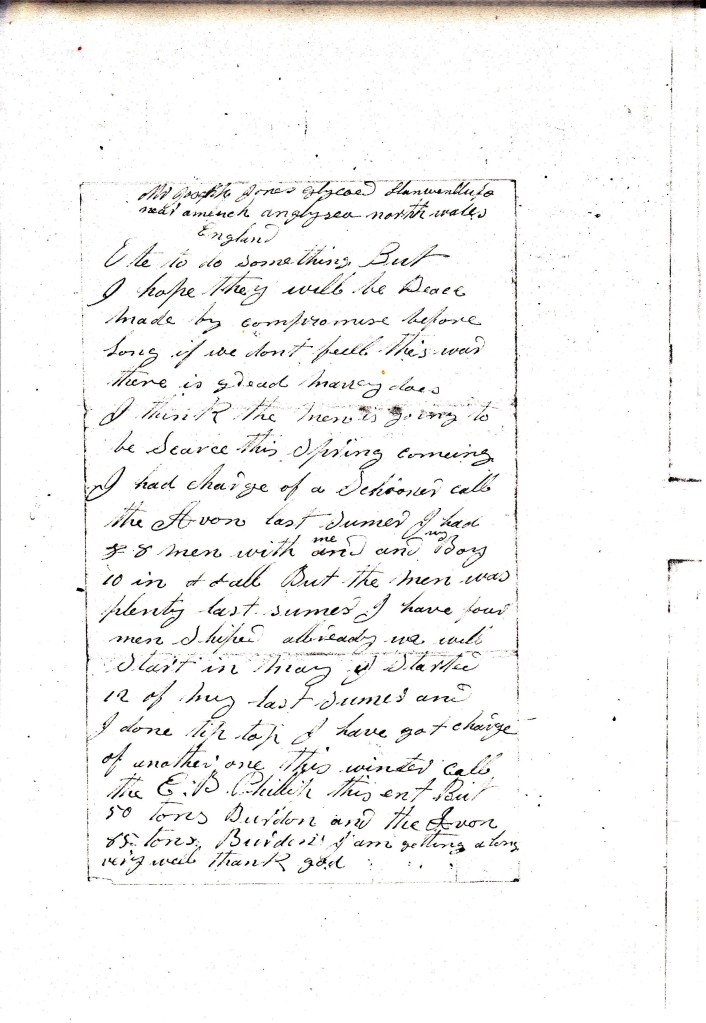 Mr Jones
near amluch anglysea north wales
England
te to do something But
I hope they will be Peace
made by compromise before
Long if we dont feell this war
there is a dead many does
I think the men is going to
be Scarce this Spring comeing
I had charge of a Schooner call
the Avon last sumer I had
8 men with me and and my Boy
10 in all But the men was
plenty last sumer I have four
men Shiped allready we will
Start in may I Started
12 of last sumer and
I done tip top I have got charge
of another one this winder call
the E. B. Phillip this ent But
50 tons Burdon and the Avon
85 tons Burden I am getting along
very well thank god